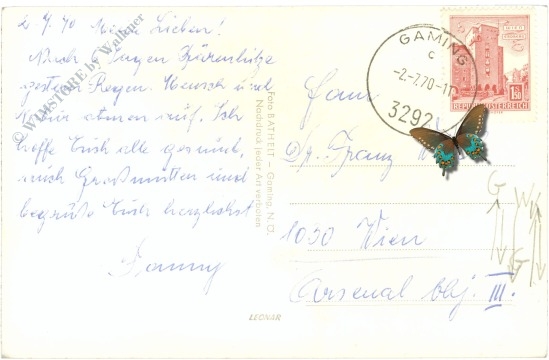 2.7.70 Meine Lieben!
Nach 6 Tagen Bärenhitze
gestern Regen. Mensch und
atmen auf. Ich
hoffe Euch alle gesund,
auch Großmutter und
begrüße Euch herzlichst
© WIMSTORE by Wallner
Foto BATHELT - Gaming, N.Ö.
Nachdruck jeder Art verboten
LEONAR
GAMING
C
-2.-7.70-17
3292
WIEN
1.50
REPUBLIK ÖSTERREICH
Fam.
Franz
1030 Wien
Arsenal Obj. III.
G
G